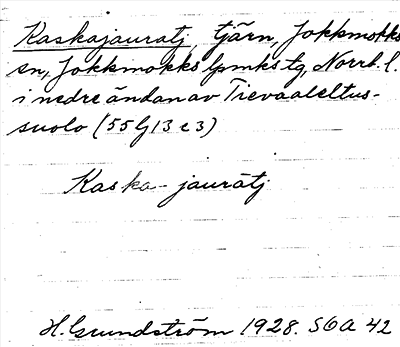 Kaskajauratj, tjärn, Jokkmokks
sn, Jokkmokks lpmks tg, Norrb. l.
i nedre ändan av Tievaaleltus-
suolo (55 G 13 e 3)
Kaska-jauratj
H. Grundström 1928. SOA 42